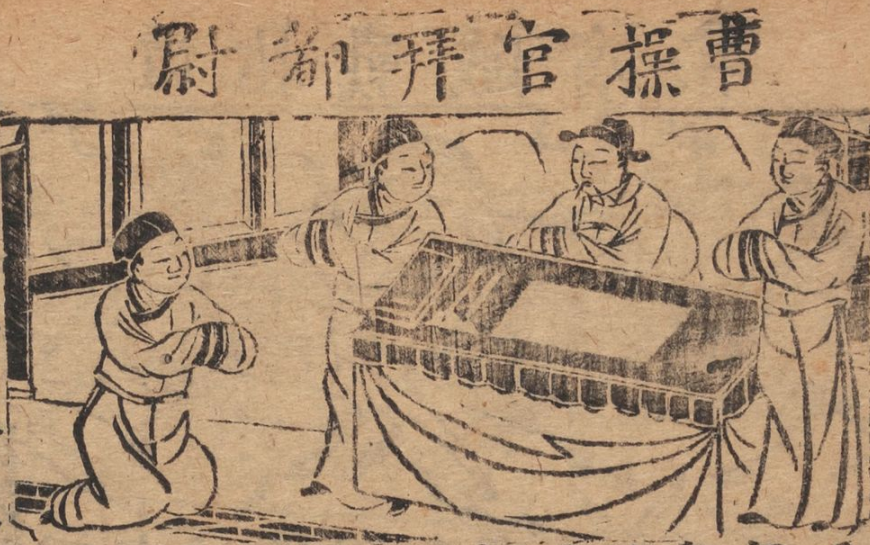 曹操官拜都尉